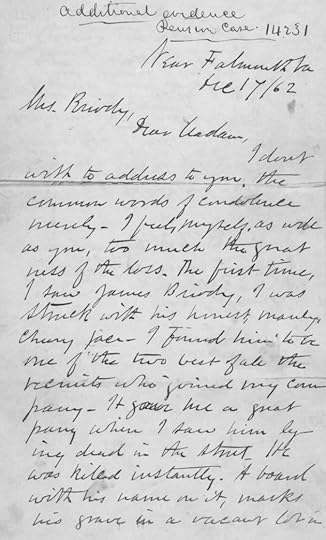 additional evidence
Pension Case 14231
Near Falmouth Va
Dec 17/62
Mrs. Briody,
Dear Madam,
I dont
wish to address to you, the
common words of condolence
merely - I feel, myself, as well
as you, too much the great
ness of the loss. The first time,
I saw James Briody, I was
struck with his honest, manly,
cheery face - I found him to be
one of the two best of all the
recruits who joined my com
pany - It gave me a great
pang when I saw him ly-
ing dead in the street. He
was killed instantly. A board
with his name on it, marks
his grave in a vacant lot in